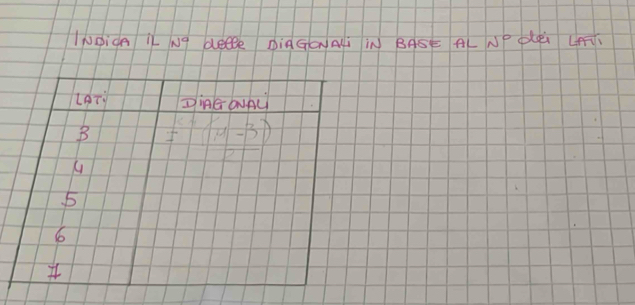 INDICA IL N° delle DIAGONALI IN BASE AL N° dei LATI
LATI DIAGONALI
3 = (n-3)
4
5
6
7